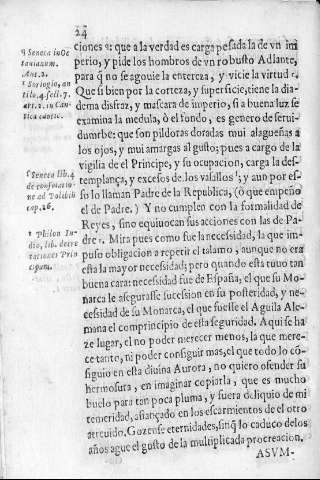 24
ciones q: que a la verdad es carga pesada la de vn im
perio, y pide los hombros de vn robusto Adlante,
para q̃ no se agouie la entereza, y vicie la virtud r.
Que si bien por la corteza, y superficie, tiene la dia-
dema disfraz, y mascara de imperio, si a buena luz se
examina la medula, ò el fondo, es genero de serui-
dumbre; que son pildoras doradas mui alagueñas a
los ojos, y mui amargas al gusto; pues a cargo de la
vigilia de el Principe, y su ocupacion, carga la des-
templança, y excesos de los vasallos ſ; y aun por es-
so lo llaman Padre de la Republica, (ò que empeño
el de Padre.) Y no cumplen con la formalidad de
Reyes, sino equiuocan sus acciones con las de Pa-
dre t. Mira pues como fue la necessidad, la que im-
puso obligacion a repetir el talamo, aunque no era
esta la mayor necessidad; pero quando esta tuuo tan
buena cara: necessidad fue de España, el que su Mo-
narca le asegurasse sucession en su posteridad, y ne-
cessidad de su Monarca, el que fuesse el Aguila Ale-
mana el comprincipio de esta seguridad. Aqui se ha
ze lugar, el no poder merecer menos, la que mere-
ce tanto, ni poder conseguir mas, el que todo lo cõ-
siguio en esta diuina Aurora, no quiero ofender su
hermosura, en imaginar copiarla, que es mucho
buelo para tan poca pluma, y fuera deliquio de mi
temeridad, afiançado en los escarmientos de el otro
atreuido. Gozense eternidades, sinq̃ lo caduco de los
años ague el gusto de la multiplicada procreacion.
ASVM-
q Seneca in Oc
tauianum.
Act. 2.
r Soriogio, an
tilo. 4. sect. 7.
art. 2. in Can-
tica cantic.
ſ Seneca lib. 4
de consolatio-
ne ad Polibiũ
cap. 26.
t Philon Iu-
dio, lib. decre
tationes Prin
cipum.